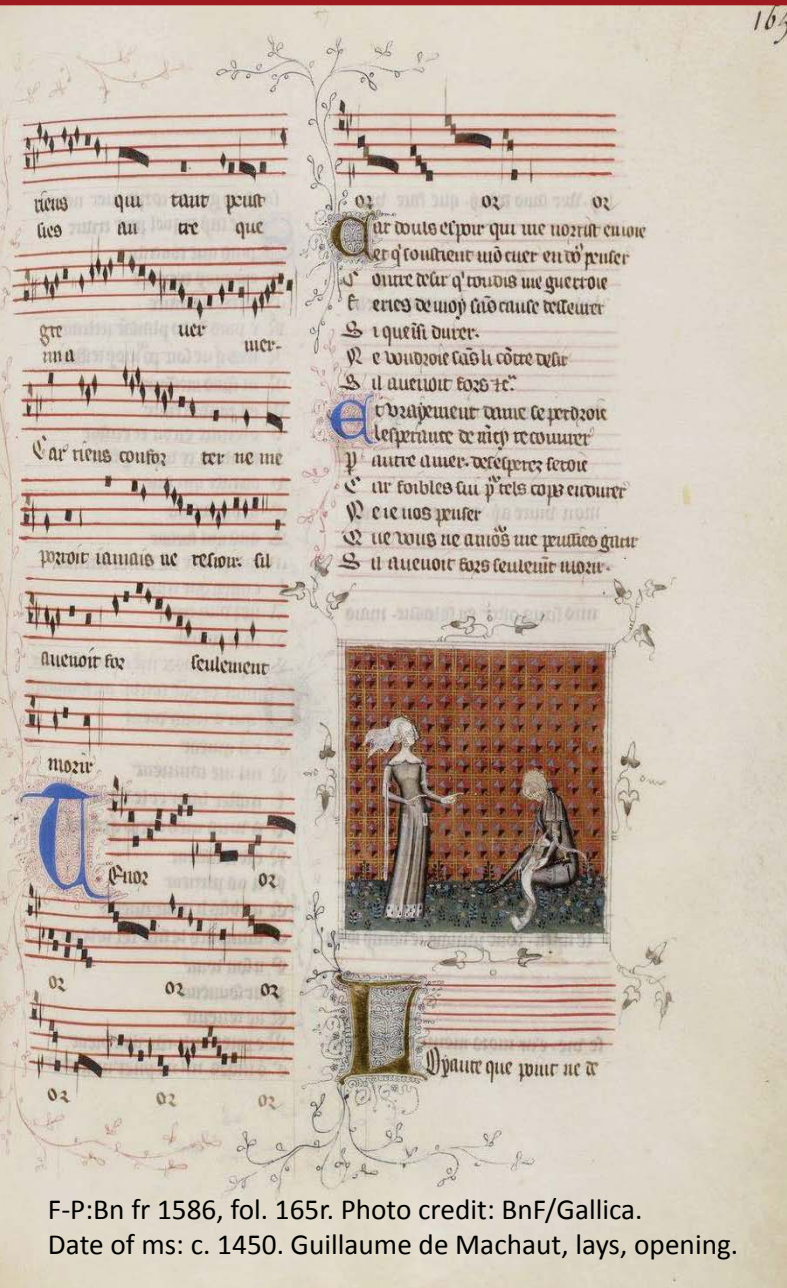 165
riens qui tant peust
sies au tre que
gre uer
ma mer-
Car riens confor ter ne me
porroit iamais ne resioir. sil
auenoit for seulement
morir
TEnor or
or or or
or or or
or or or
Car douls espoir qui me norrist en ioie
Et q' soustient mō cuer en
Contre desir q' toudis me guerroie
de moy sās cause
Si que durer.
Ne voudroie sās li cōtre desir
Sil auenoit fors
Et vrayement dame ie perdroie
Lesperance de recouurer
Pautre amer. desesperez seroie
Car foibles sui tels cops endurer
Ne ie nos penser
Que vous ne me peussies garir
Sil auenoit fors seulemēt morir.
LOyaute que point ne de
F-P:Bn fr 1586, fol. 165r. Photo credit: BnF/Gallica.
Date of ms: c. 1450. Guillaume de Machaut, lays, opening.